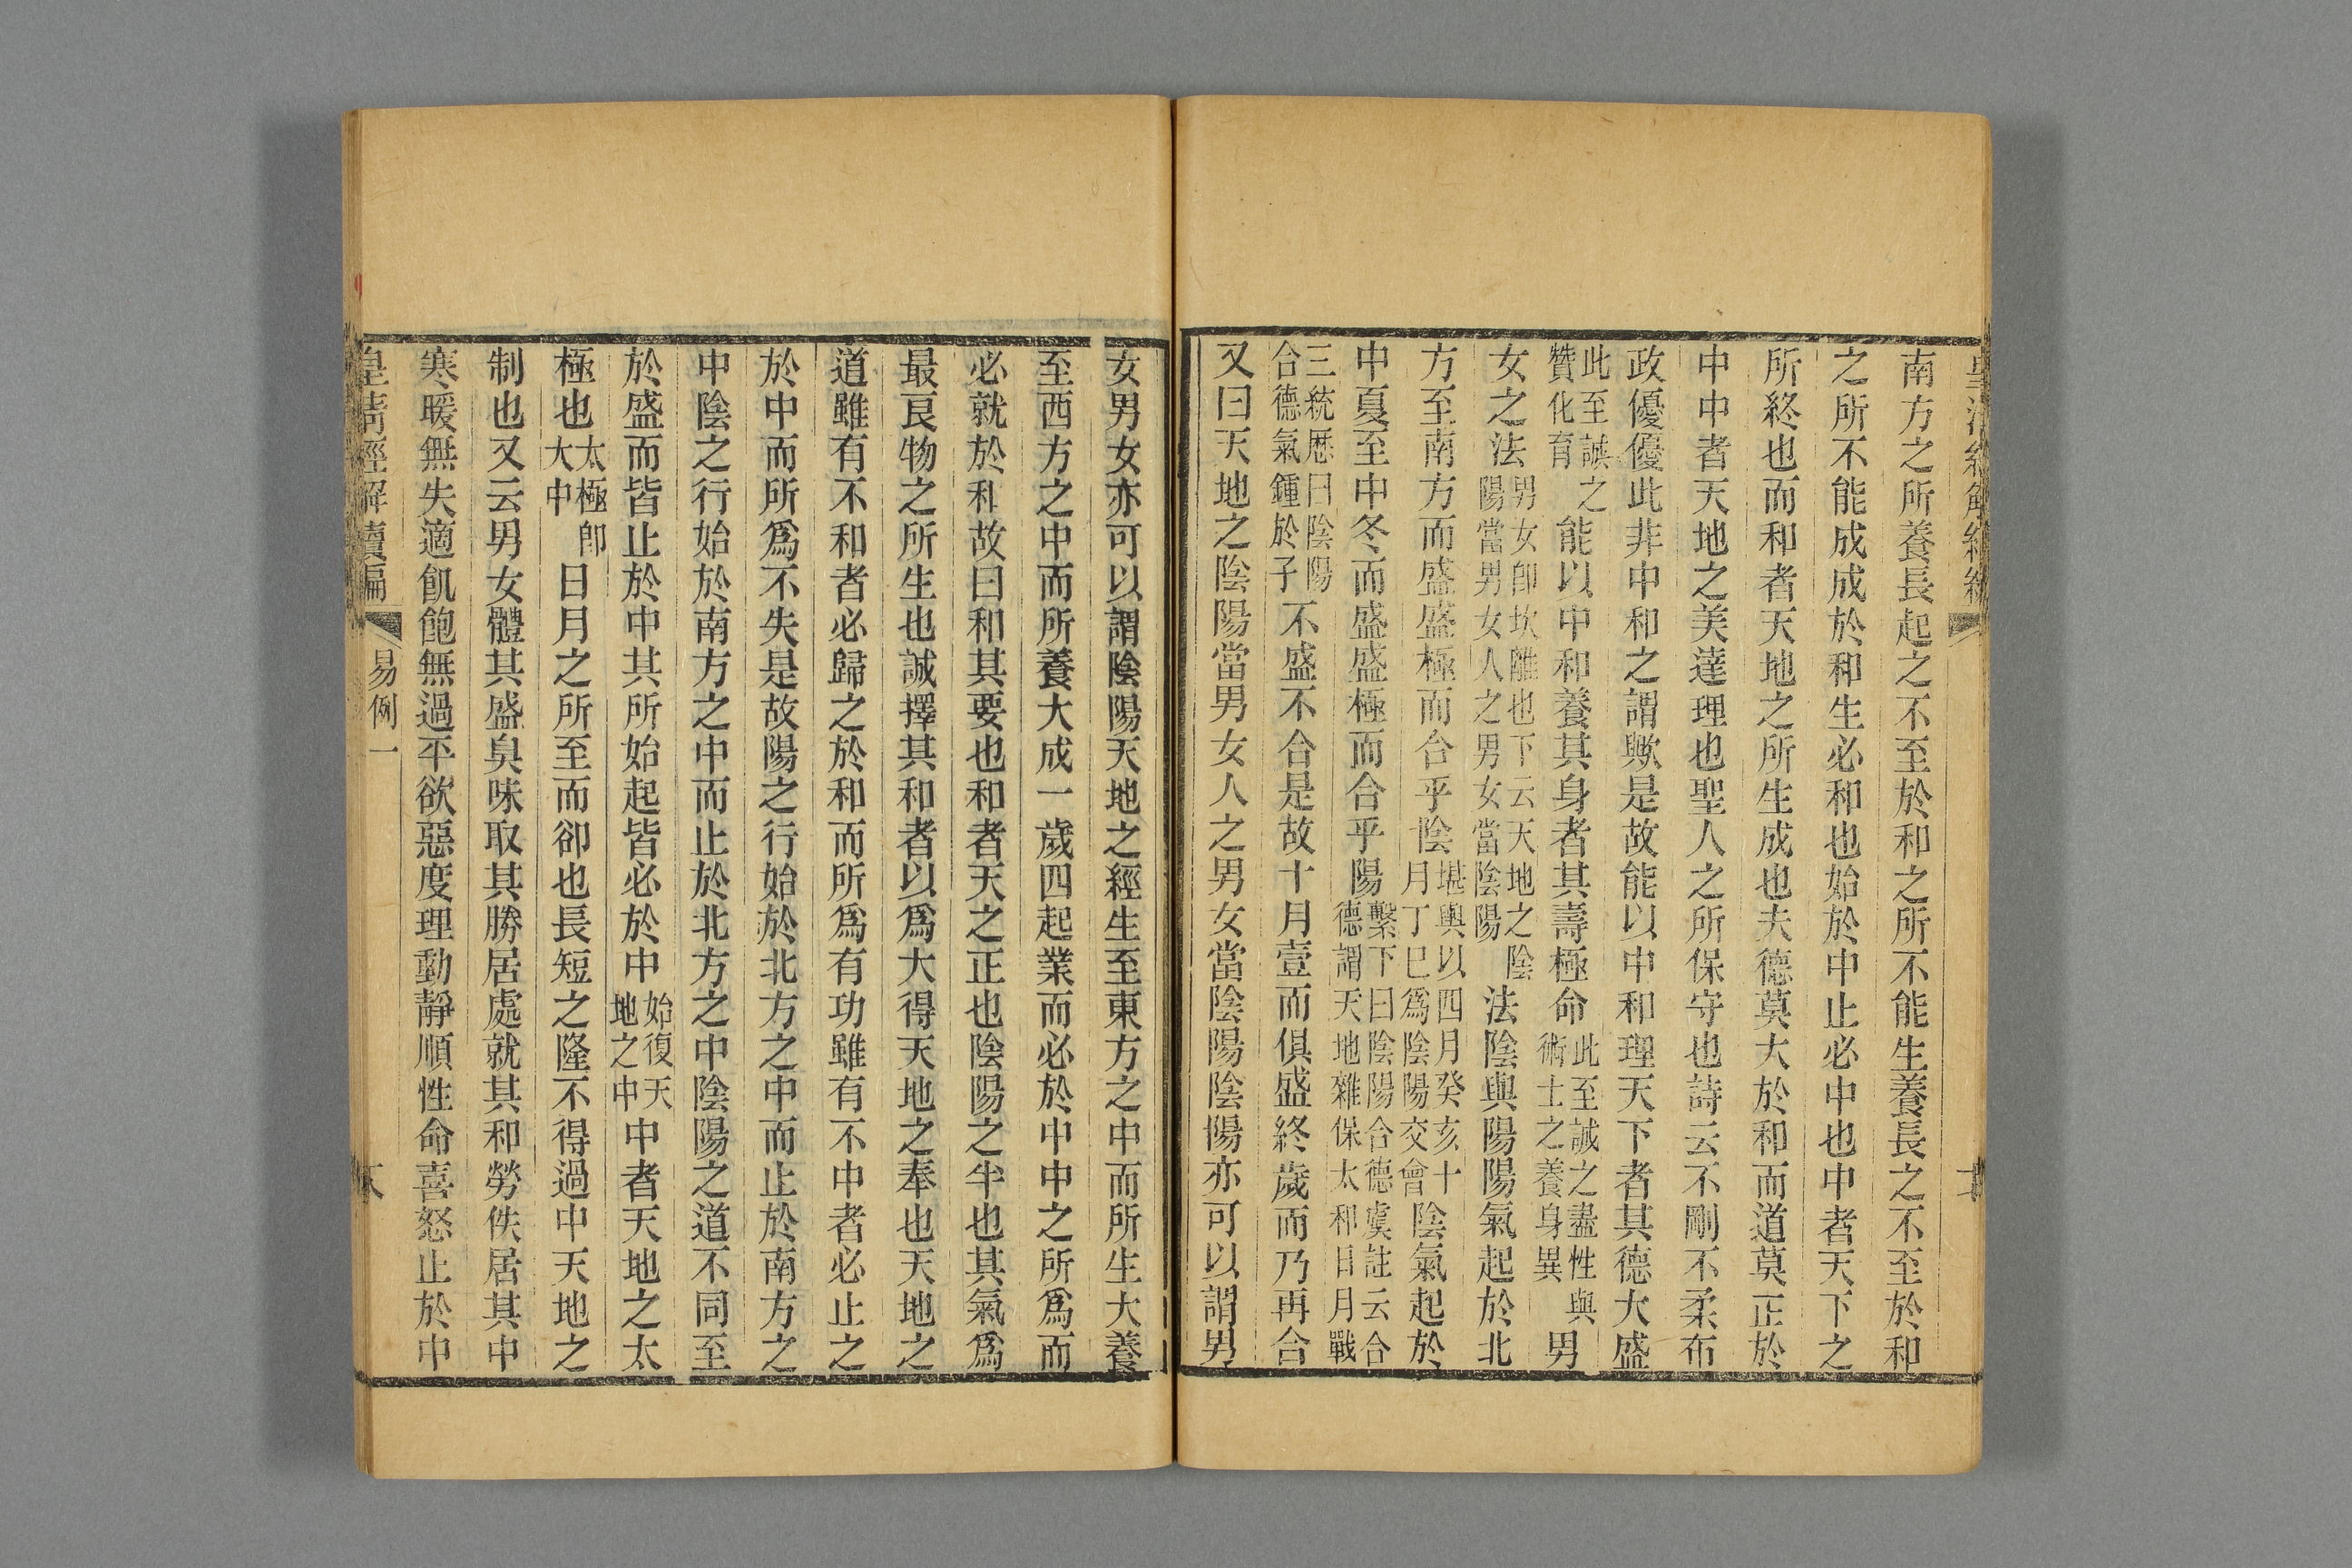 南方之所養長起之不至於和之所不能生養長之不至於和
之所不能成成於和生必和也始於中止必中也中者天下之
所終也而和者天地之所生成也夫德莫大於和而道莫正於
中中者天地之美達理也聖人之所保守也詩云不剛不柔布
政優優此非中和之謂歟是故能以中和理天下者其德大盛
此至誠之贊化育能以中和養其身者其壽極命此至誠之盡性與術士之養身異男
女之法男女卽坎離也下云天地之陰陽當男女人之男女當陰陽法陰與陽陽氣起於北
方至南方而盛盛極而合乎陰堪輿以四月癸亥十月丁巳爲陰陽交會陰氣起於
中夏至中冬而盛盛極而合乎陽繫下曰陰陽合德虞註云合德謂天地雜保太和日月戰
三統厯曰陰陽合德氣鍾於子不盛不合是故十月壹而俱盛終歲而乃再合
又曰天地之陰陽當男女人之男女當陰陽陰陽亦可以謂男
女男女亦可以謂陰陽天地之經生至東方之中而所生大養
至西方之中而所養大成一歲四起業而必於中中之所爲而
必就於和故曰和其要也和者天之正也陰陽之平也其氣爲
最良物之所生也誠擇其和者以爲大得天地之奉也天地之
道雖有不和者必歸之於和而所爲有功雖有不中者必止之
於中而所爲不失是故陽之行始於北方之中而止於南方之
中陰之行始於南方之中而止於北方之中陰陽之道不同至
於盛而皆止於中其所始起皆必於中始復天地之中中者天地之太
極也太極卽大中日月之所至而卻也長短之隆不得過中天地之
制也又云男女體其盛臭味取其勝居處就其和勞佚居其中
寒暖無失適飢飽無過平欲惡度理動靜順性命喜怒止於中
皇清經解續編
易例一